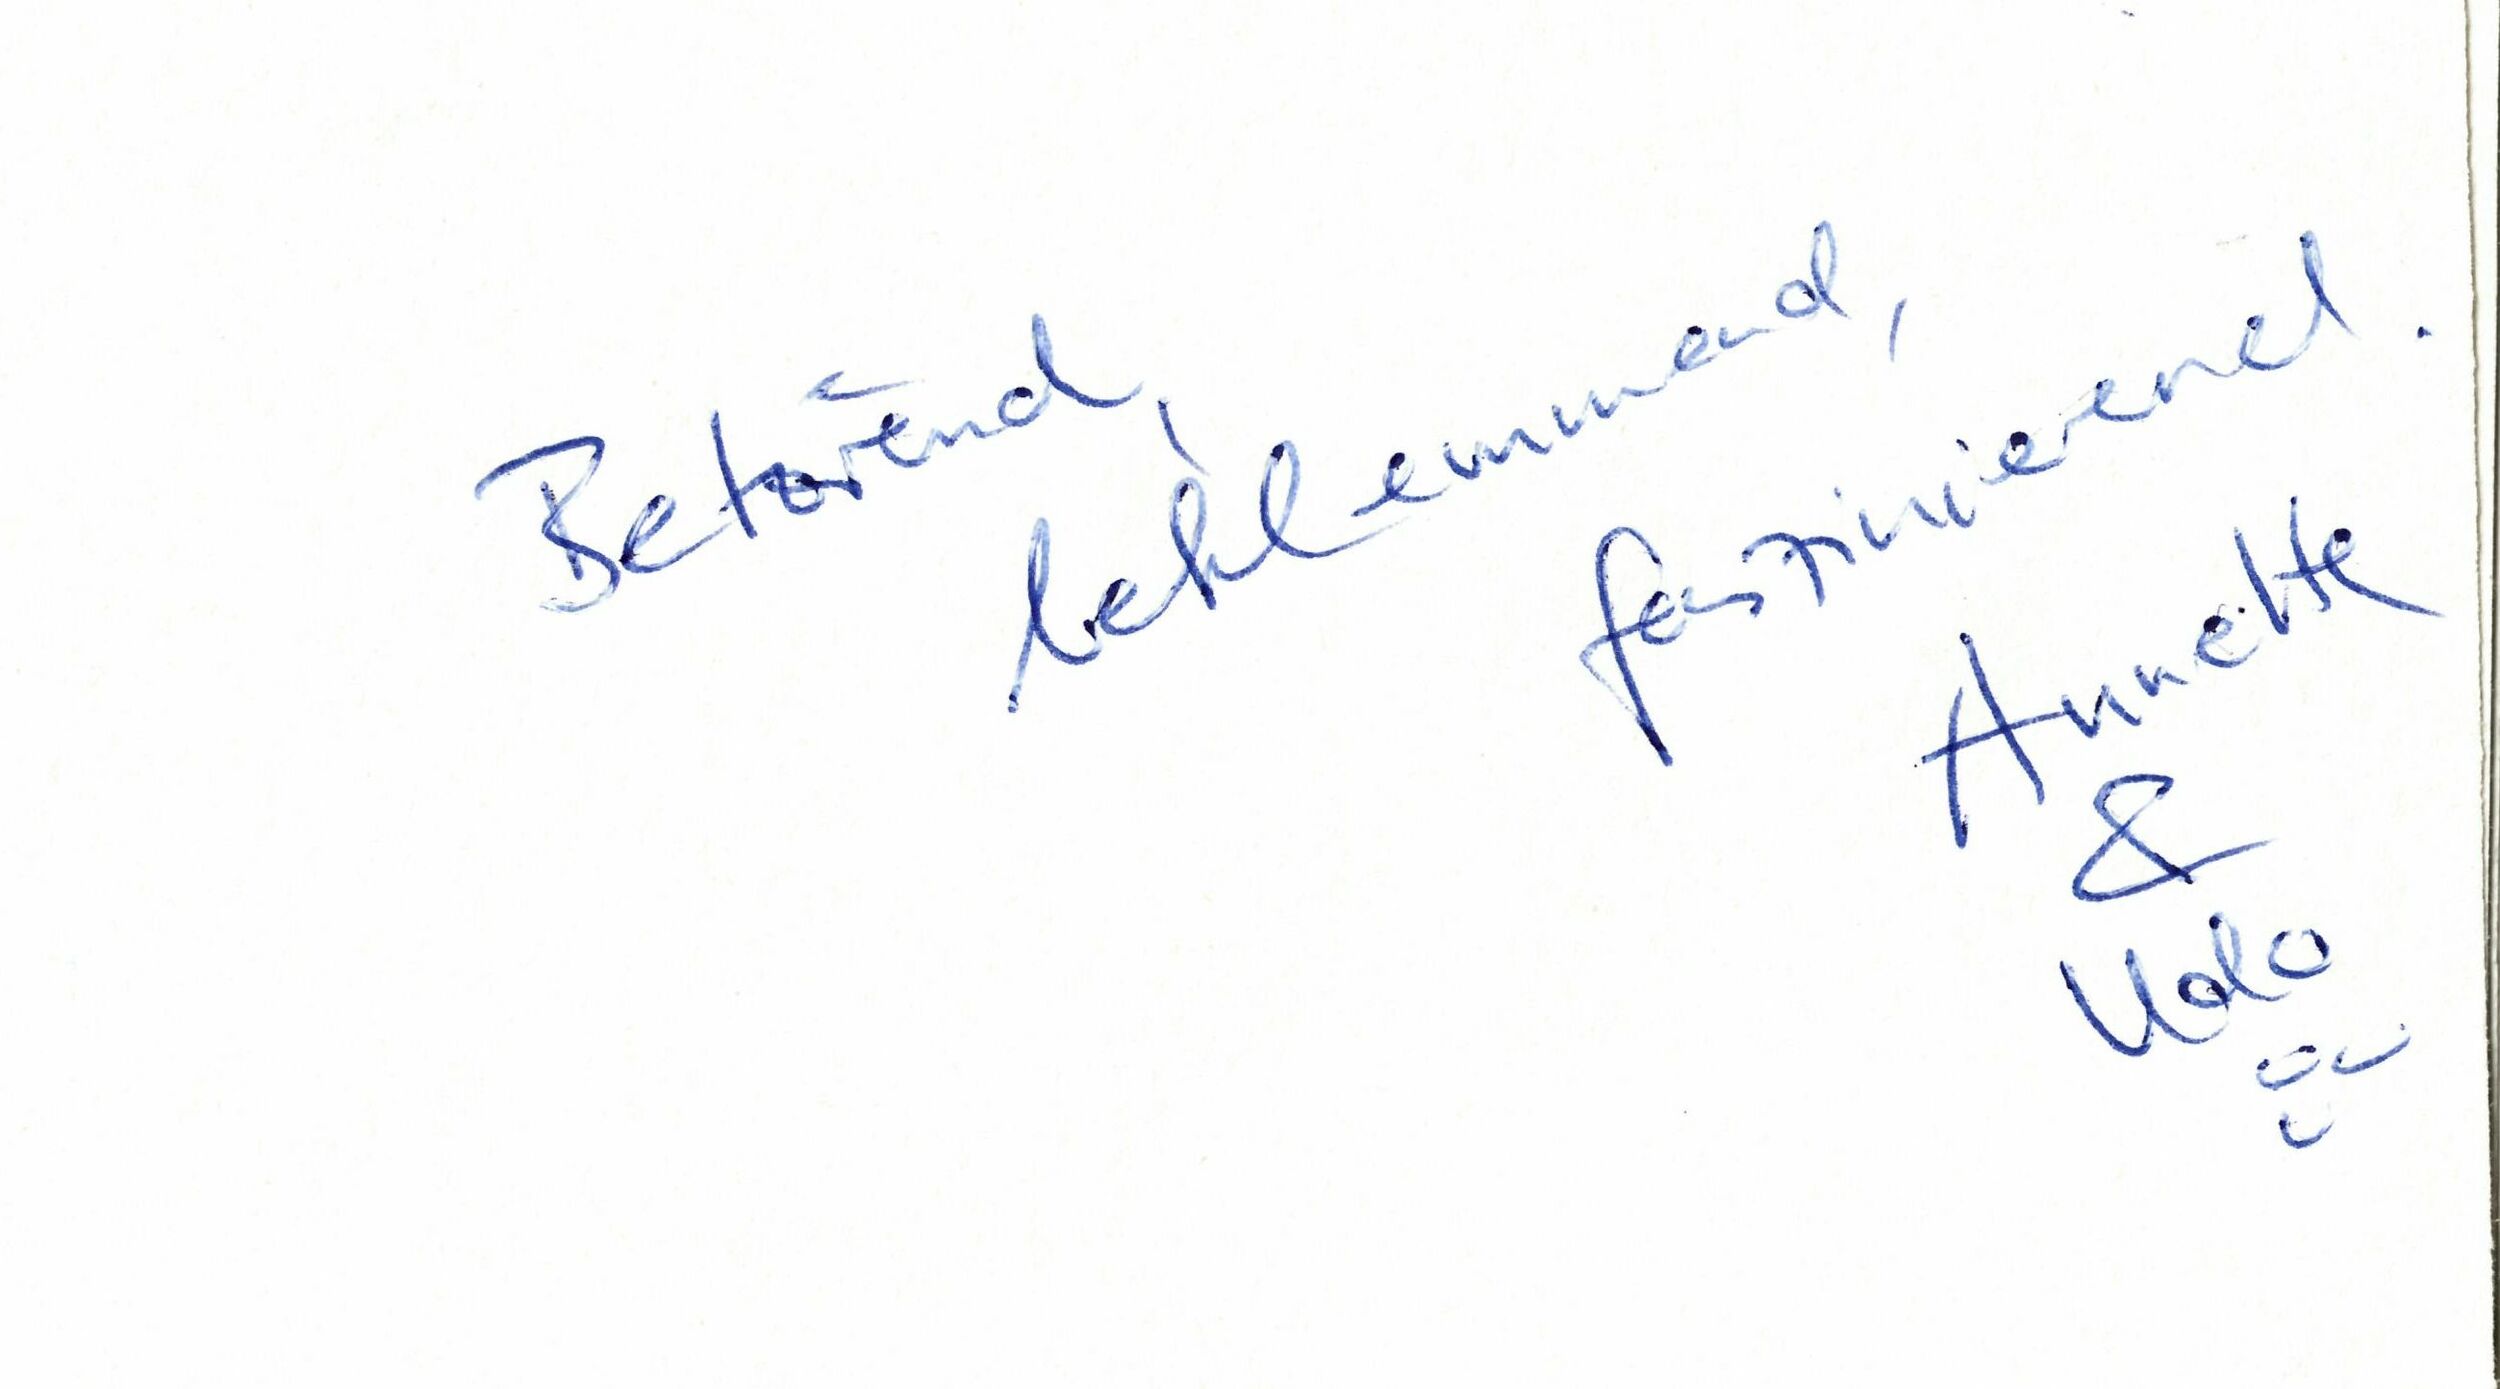 Betörend,
beklemmend,
faszinierend.
Annette
&
Udo